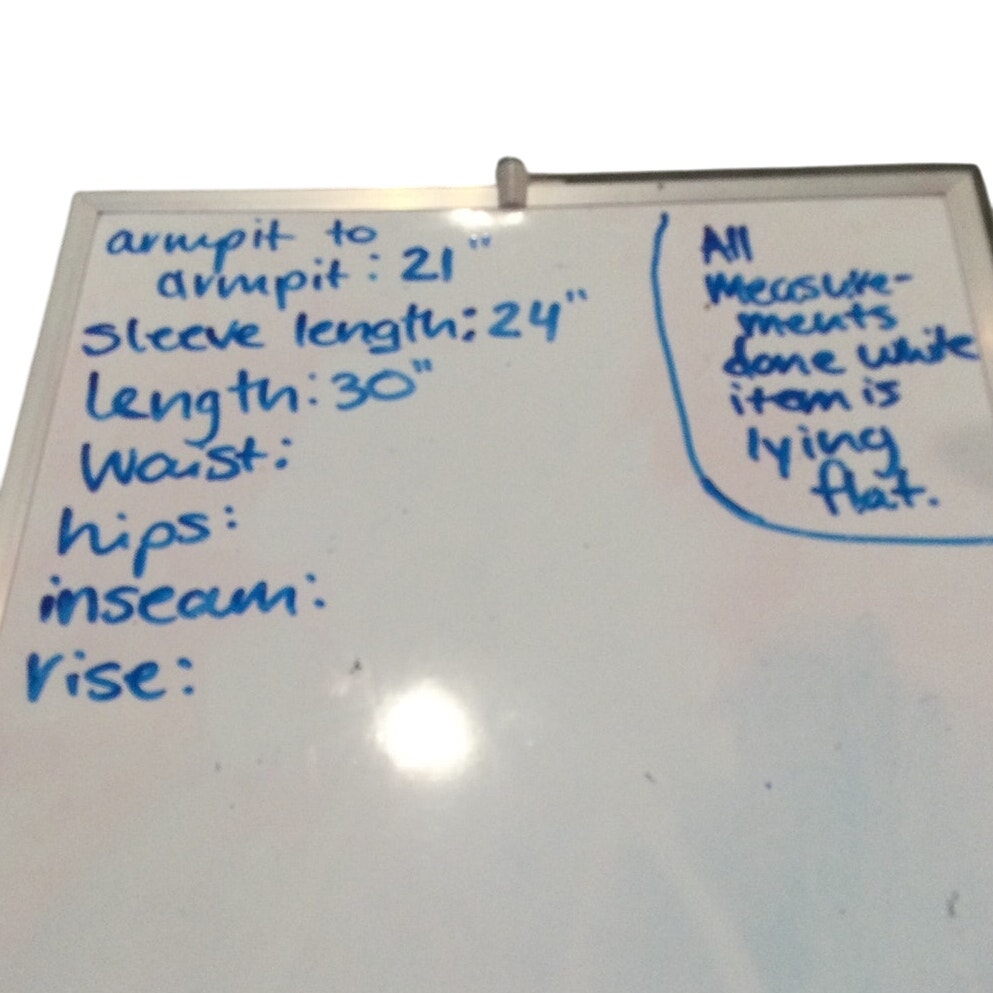 armpit to
armpit: 21"
sleeve length: 24"
length: 30"
Waist:
hips:
inseam:
rise:
All
measure-
ments
done while
item is
lying
flat.